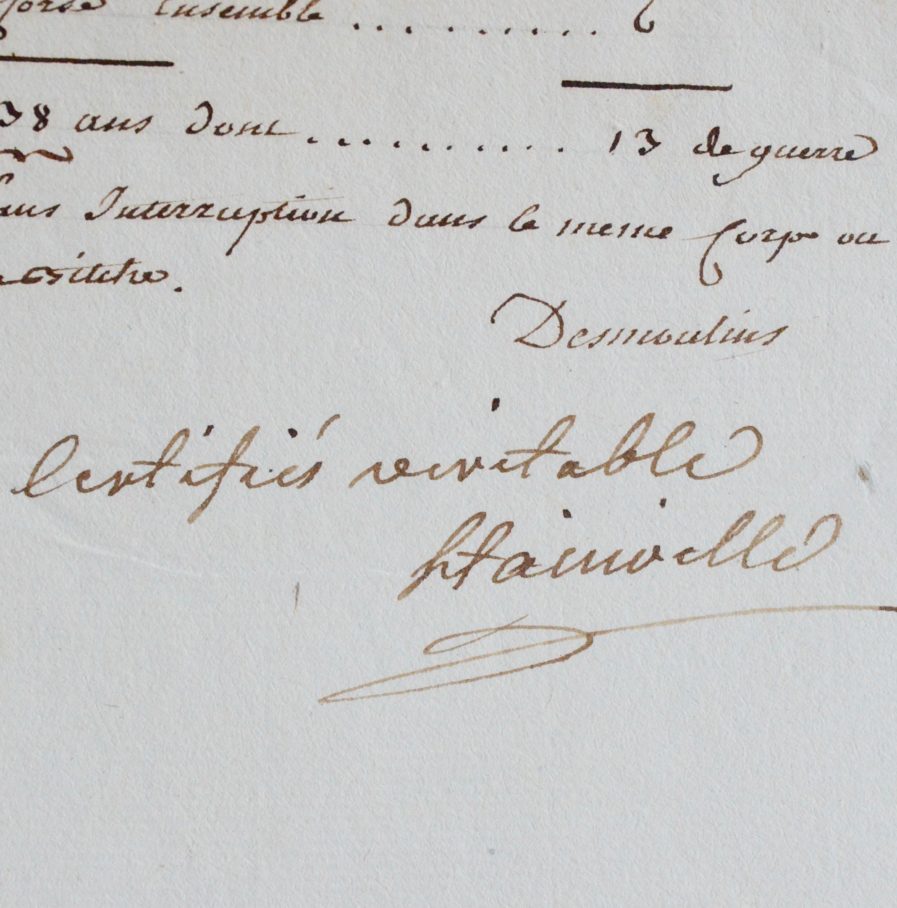 Corse Ensemble .......... 6
38 ans dont .......... 13 de guerre
sans Interruption dans le meme Corps ou
Desmoulins
Certifiés veritable
Stainville